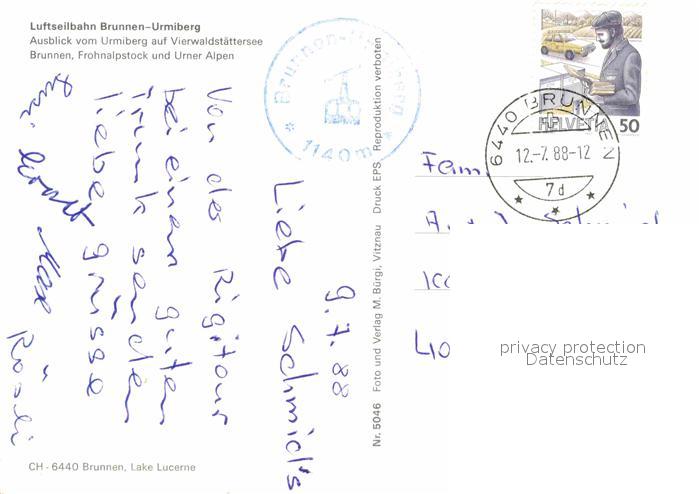 Luftseilbahn Brunnen-Urmiberg
Ausblick vom Urmiberg auf Vierwaldstättersee
Brunnen, Frohnalpstock und Urner Alpen
Brunnen-Urmiberg
* 1140m *
HELVETIA 50
6440 BRUNNEN
12.-7.88-12
7d
9.7.88
Liebe Schmid's
Von der Rigitour
bei einem guten
Trunk senden
liebe Grüsse
Max
Rösli
Nr. 5046 Foto und Verlag M. Bürgi, Vitznau Druck EPS Reproduktion verboten
Fam.
Schmid
40
privacy protection
Datenschutz
CH - 6440 Brunnen, Lake Lucerne